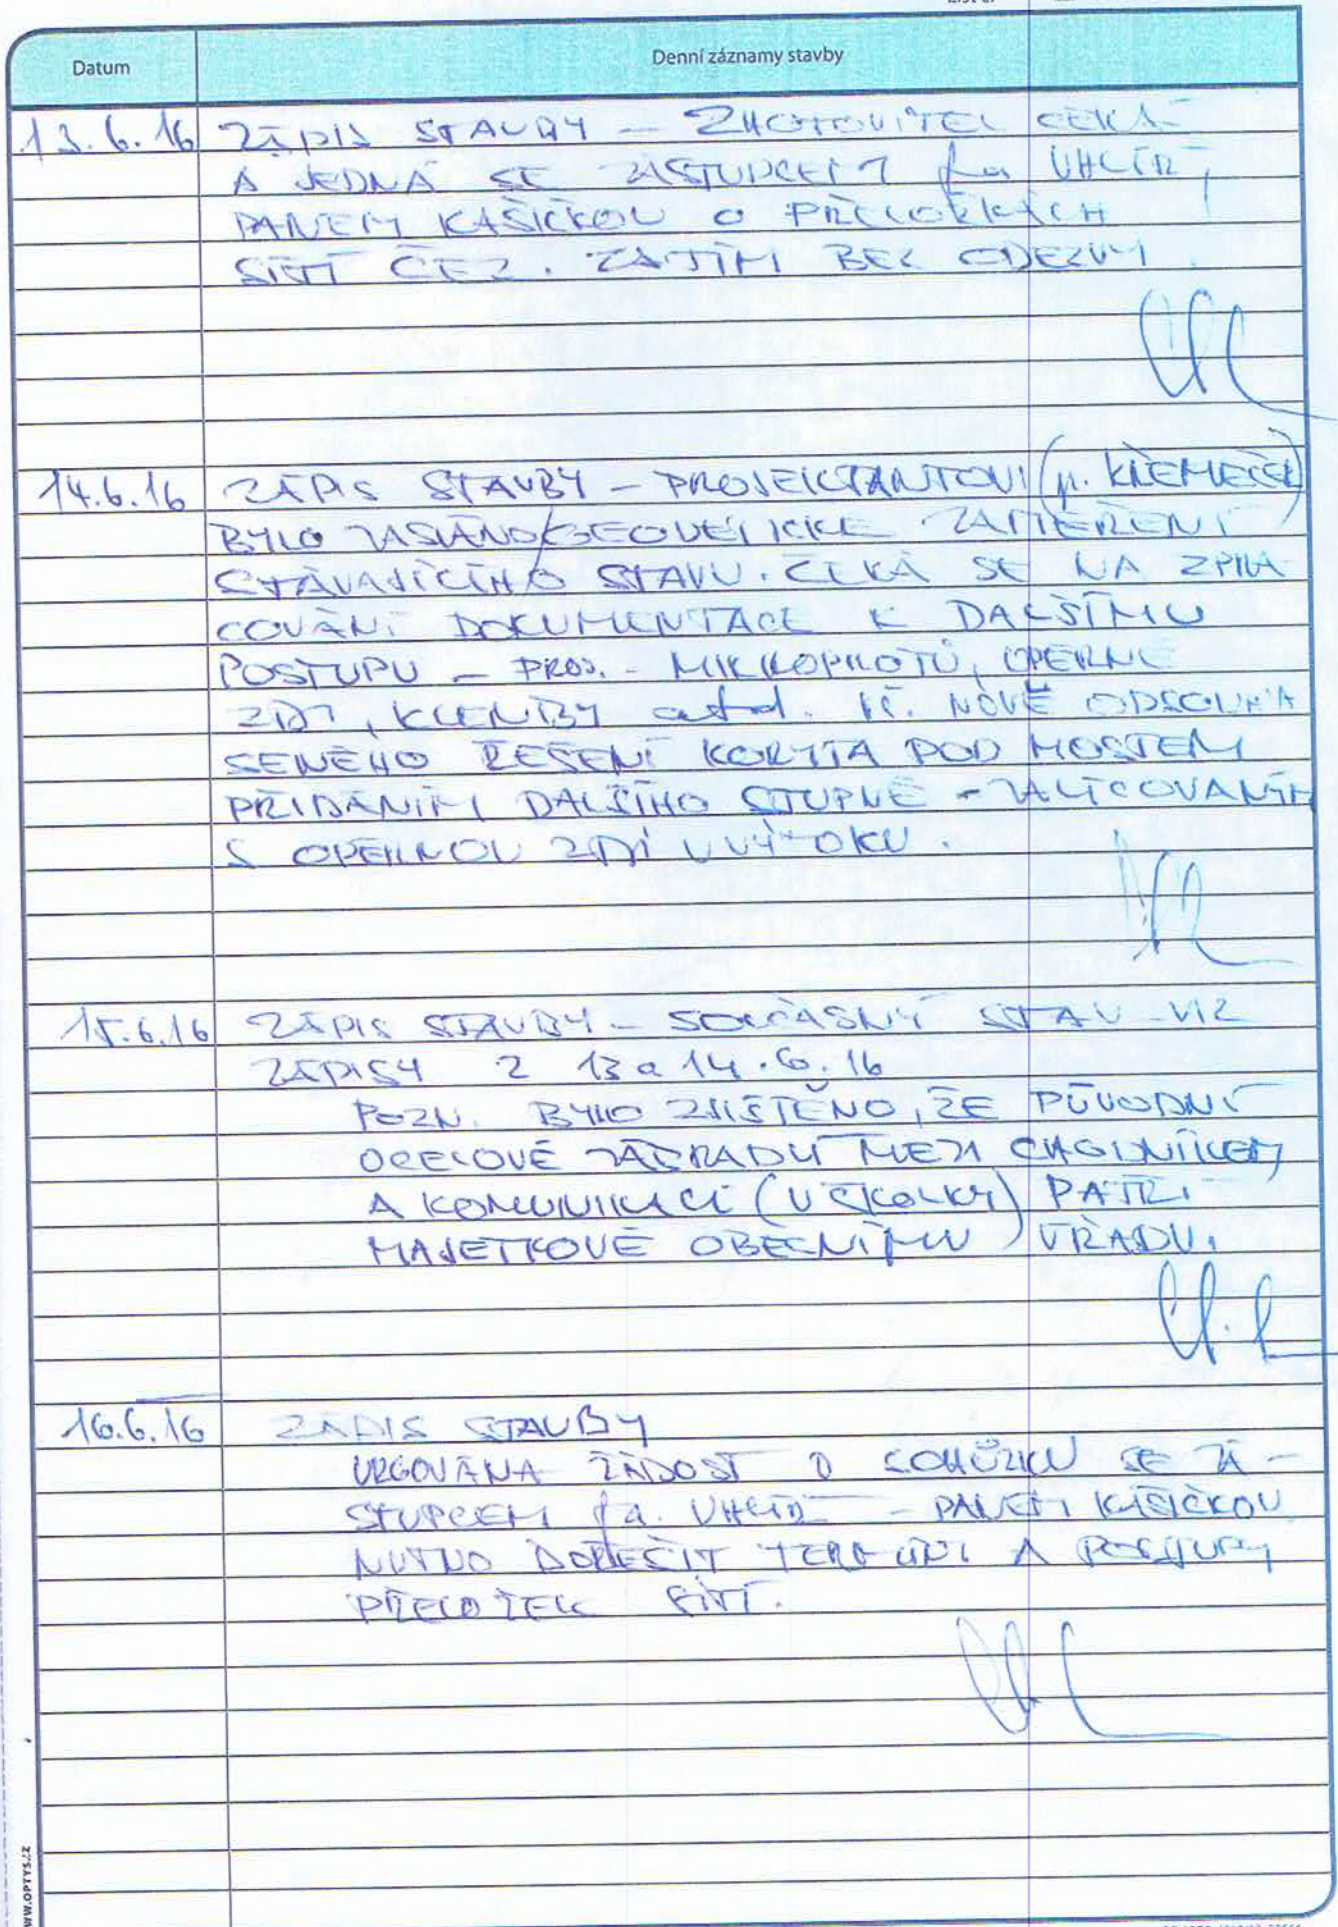 Datum
Denní záznamy stavby
13.6.16 ZÁPIS STAVBY – ZHOTOVITEL ČEKÁ
A JEDNÁ SE ZÁSTUPCEM fa UHLÍŘ,
PANEM KAŠIČKOU O PŘELOŽKÁCH
SÍTÍ ČEZ. ZATÍM BEZ ODEZVY.
14.6.16 ZÁPIS STAVBY – PROJEKTANTOVI (p. KŘEMEČEK)
BYLO ZASLÁNO GEODETICKÉ ZAMĚŘENÍ
STÁVAJÍCÍHO STAVU. ČEKÁ SE NA ZPRA-
COVÁNÍ DOKUMENTACE K DALŠÍMU
POSTUPU – PROJ. – MIKROPILOTŮ, OPĚRNÉ
ZDI, KLENBY atd. VČ. NOVĚ ODSOUHLA
SENÉHO ŘEŠENÍ KORYTA POD MOSTEM
PŘIDÁNÍM DALŠÍHO STUPNĚ – ZALÍCOVANÝM
S OPĚRNOU ZDÍ U VÝTOKU.
15.6.16 ZÁPIS STAVBY – SOUČASNÝ STAV – VIZ
ZÁPISY Z 13 a 14.6.16
POZN. BYLO ZJIŠTĚNO, ŽE PŮVODNÍ
OCELOVÉ ZÁBRADLÍ MEZI CHODNÍKEM
A KOMUNIKACÍ (U ŠKOLKY) PATŘÍ
MAJETKOVĚ OBECNÍMU ÚŘADU.
16.6.16 ZÁPIS STAVBY
URGOVÁNA ŽÁDOST O SCHŮZKU SE ZÁ-
STUPCEM fa. UHLÍŘ – PANEM KAŠIČKOU
NUTNO DOŘEŠIT TERMÍNY A POSTUPY
PŘELOŽEK SÍTÍ.
WWW.OPTYS.CZ